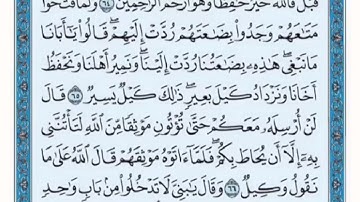 قَبْلُ فَٱللَّهُ خَيْرٌ حَٰفِظًا وَهُوَ أَرْحَمُ ٱلرَّٰحِمِينَ ٦٤ وَلَمَّا فَتَحُوا۟
مَتَٰعَهُمْ وَجَدُوا۟ بِضَٰعَتَهُمْ رُدَّتْ إِلَيْهِمْ قَالُوا۟ يَٰٓأَبَانَا
مَا نَبْغِى هَٰذِهِۦ بِضَٰعَتُنَا رُدَّتْ إِلَيْنَا وَنَمِيرُ أَهْلَنَا وَنَحْفَظُ
أَخَانَا وَنَزْدَادُ كَيْلَ بَعِيرٍ ذَٰلِكَ كَيْلٌ يَسِيرٌ ٦٥ قَالَ
لَنْ أُرْسِلَهُۥ مَعَكُمْ حَتَّىٰ تُؤْتُونِ مَوْثِقًا مِّنَ ٱللَّهِ لَتَأْتُنَّنِى
بِهِۦٓ إِلَّآ أَن يُحَاطَ بِكُمْ فَلَمَّآ ءَاتَوْهُ مَوْثِقَهُمْ قَالَ ٱللَّهُ عَلَىٰ مَا
نَقُولُ وَكِيلٌ ٦٦ وَقَالَ يَٰبَنِىَّ لَا تَدْخُلُوا۟ مِنۢ بَابٍ وَٰحِدٍ